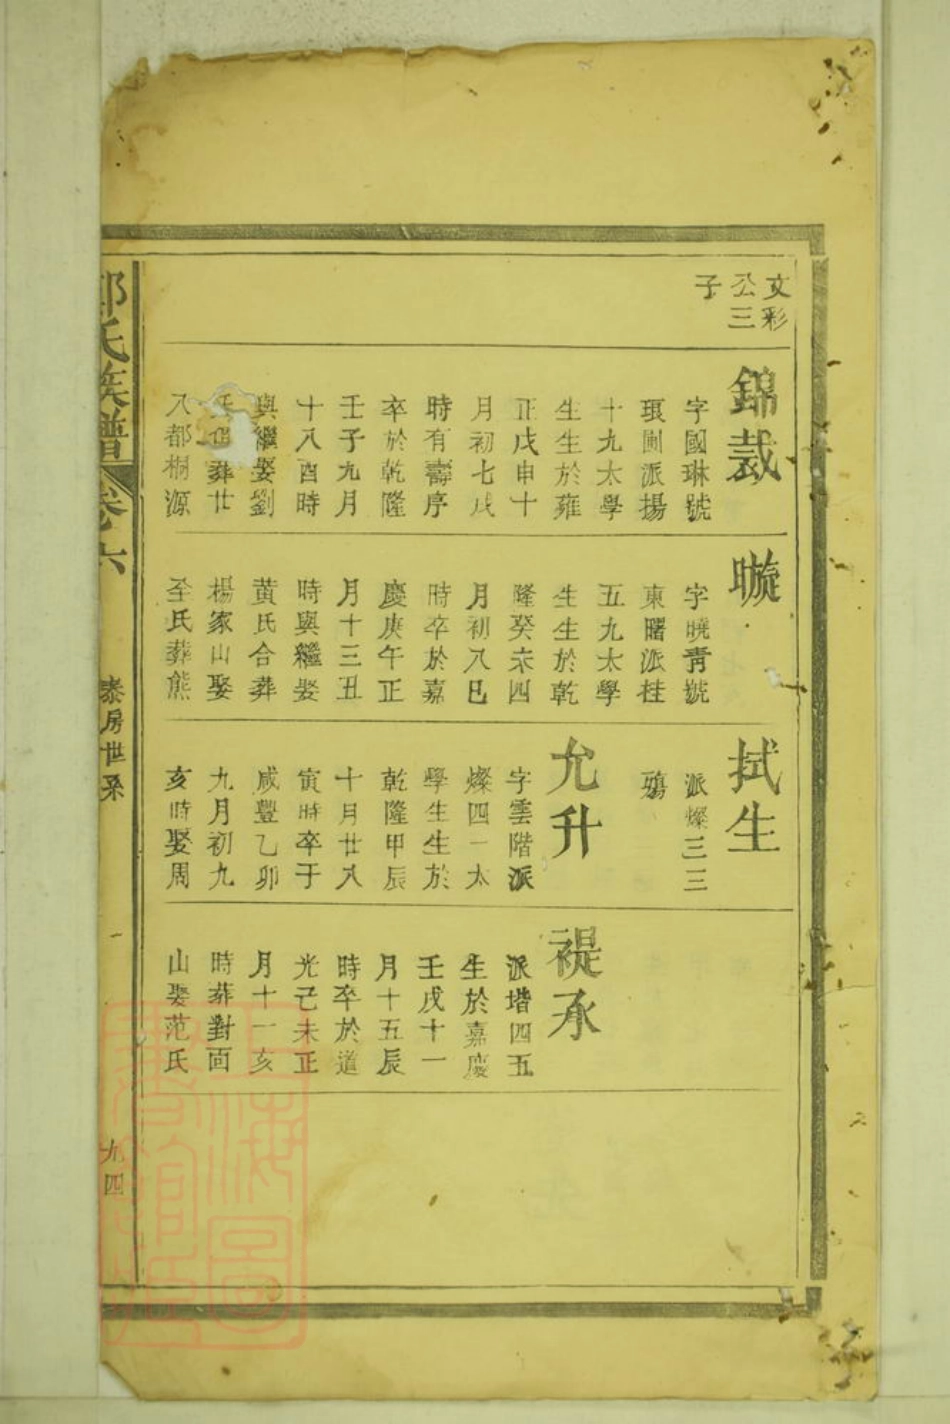 文彩
公三
子
錦裁
字國琳號
琅圃派揚
十九太學
生生於雍
正戊申十
月初七戌
時有壽序
卒於乾隆
壬子九月
十八酉時
與繼娶劉
氏葬廿
八都桐源
暶
字曉青號
東曙派桂
五九太學
生生於乾
隆癸未四
月初八巳
時卒於嘉
慶庚午正
月十三丑
時與繼娶
黄氏合葬
楊家山娶
全氏葬熊
拭生
派燦三三
殤
允升
字雲階派
燦四一太
學生生於
乾隆甲辰
十月廿八
寅時卒于
咸豐乙卯
九月初九
亥時娶周
禔承
派堦四五
生於嘉慶
壬戌十一
月十五辰
時卒於道
光己未正
月十一亥
時葬對面
山娶范氏
氏族譜
卷六
泰房世系
九四
上海圖